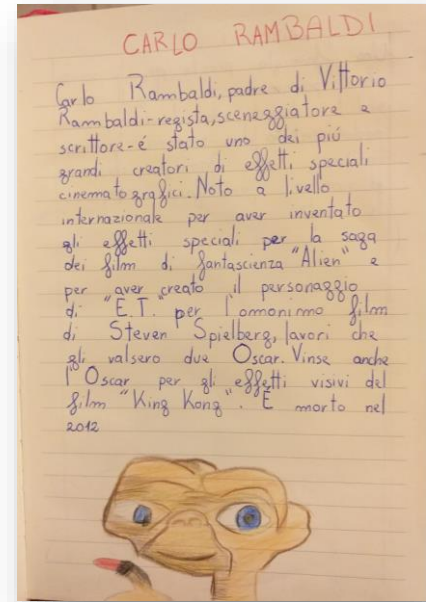 CARLO RAMBALDI
Carlo Rambaldi, padre di Vittorio
Rambaldi-regista, sceneggiatore e
scrittore-é stato uno dei piú
grandi creatori di effetti speciali
cinematografici. Noto a livello
internazionale per aver inventato
gli effetti speciali per la saga
dei film di fantascienza "Alien" e
per aver creato il personaggio
di "E.T." per l'omonimo film
di Steven Spielberg, lavori che
gli valsero due Oscar. Vinse anche
l'Oscar per gli effetti visivi del
film "King Kong". É morto nel
2012